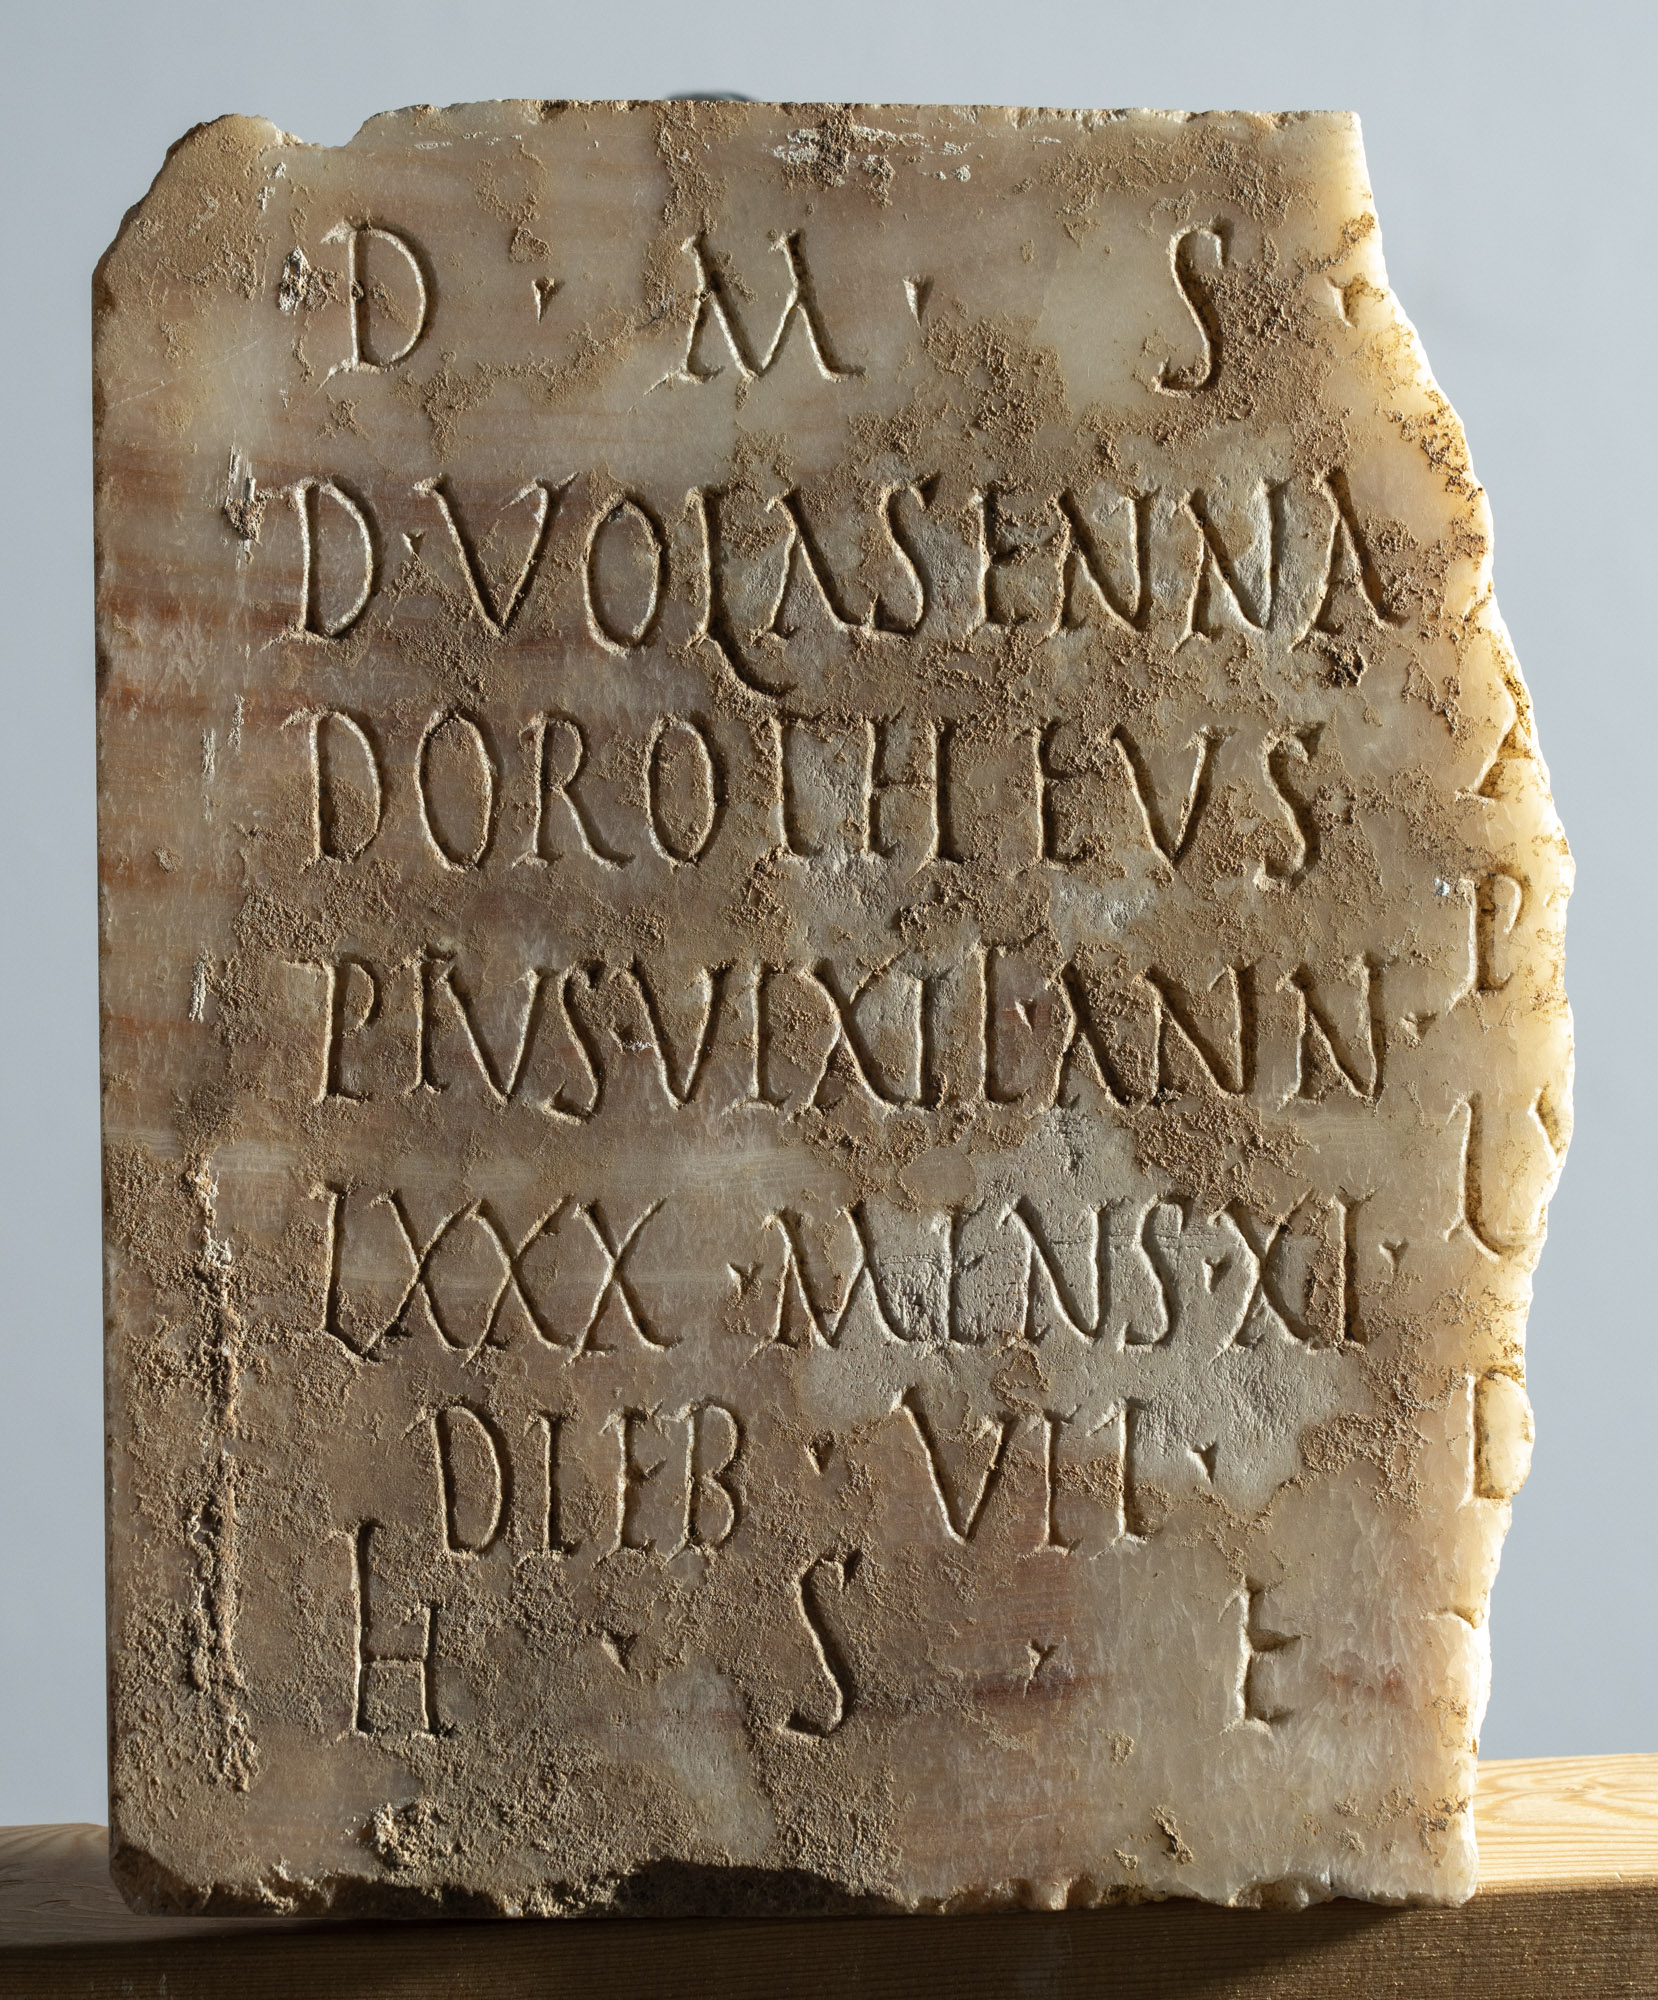 D · M · S ·
D · VOLASENNA
DOROTHEVS
PIVS · VIXIT · ANN ·
LXXX · MENS · XI ·
DIEB · VII ·
H · S · E
P
L
D